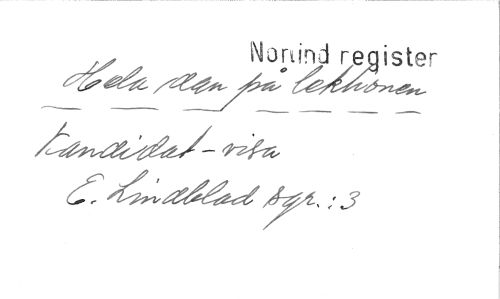 Norlind register
Hela dan på lektionen
Kandidat-visa
E. Lindblad sgr.:3